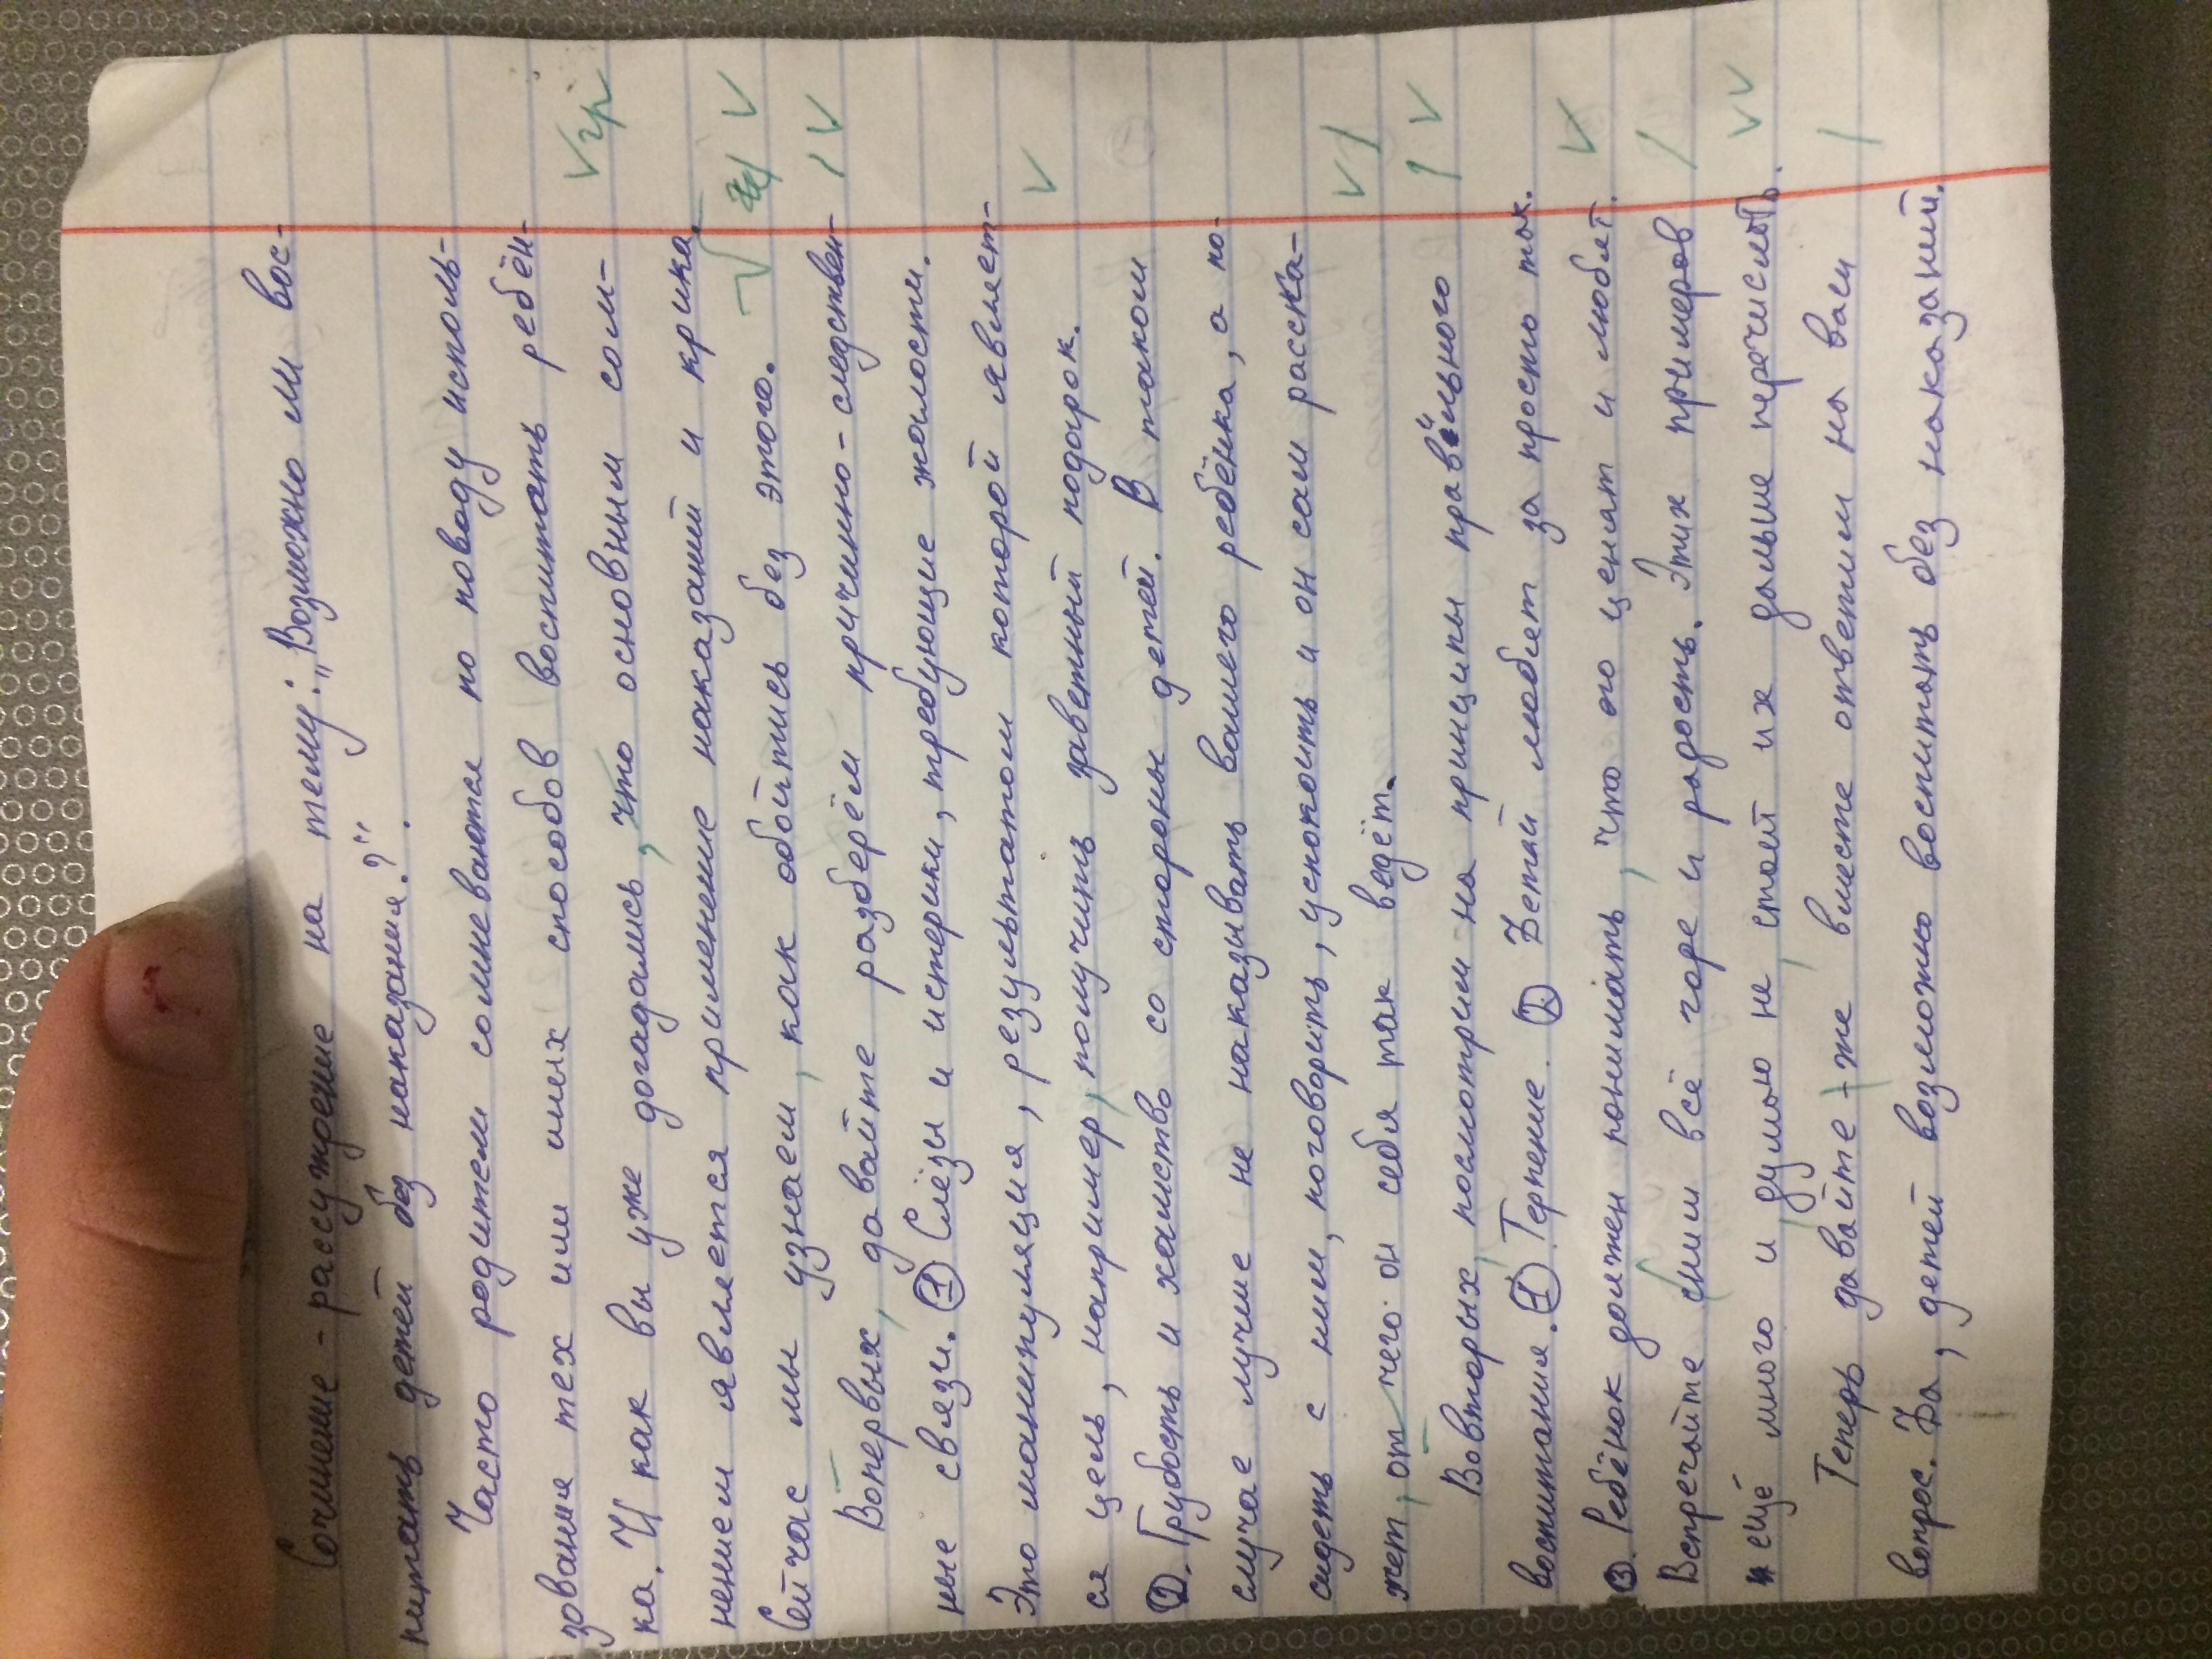 Сочинение - рассуждение на тему: „Возможно ли вос-
питать детей без наказания?“.
Часто родители сомневаются по поводу исполь-
зования тех или иных способов воспитать ребён-
ка. И как вы уже догадались, что основным сом-
нением является применение наказаний и крика.
Сейчас мы узнаем, как обойтись без этого.
Вопервых, давайте разберём причинно-следствен-
ные связи. ① Слёзы и истерики, требующие жалости.
Это манипуляция, результатом которой являет-
ся цель, например, получить заветный подарок.
②. Грубость и хамство со стороны детей. В таком
случае лучше не наказывать вашего ребёнка, а по-
сидеть с ним, поговорить, успокоить и он сам расска-
жет, от чего он себя так ведёт.
Вовторых, посмотрим на принципы правильного
воспитания. ①. Терпение. ② Детай любят за просто так.
③. Ребёнок должен понимать, что его ценят и любят.
Встречайте сним всё горе и радость. Этих примеров
ещё много и, думаю не, стоит их дальше перечислять.
Теперь давайте-же вместе ответим на ваш
вопрос. Да, детей возможно воспитать без наказаний.